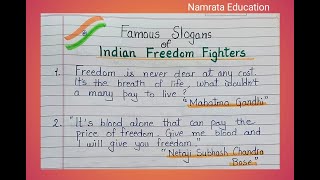 Namrata Education
Famous Slogans
of
Indian Freedom Fighters
1. Freedom is never dear at any cost.
It's the breath of life, what wouldn't
a many pay to live ?
"Mahatma Gandhi"
2. "It's blood alone that can pay the
price of freedom. Give me blood and
I will give you freedom."
"Netaji Subhash Chandra
Bose"